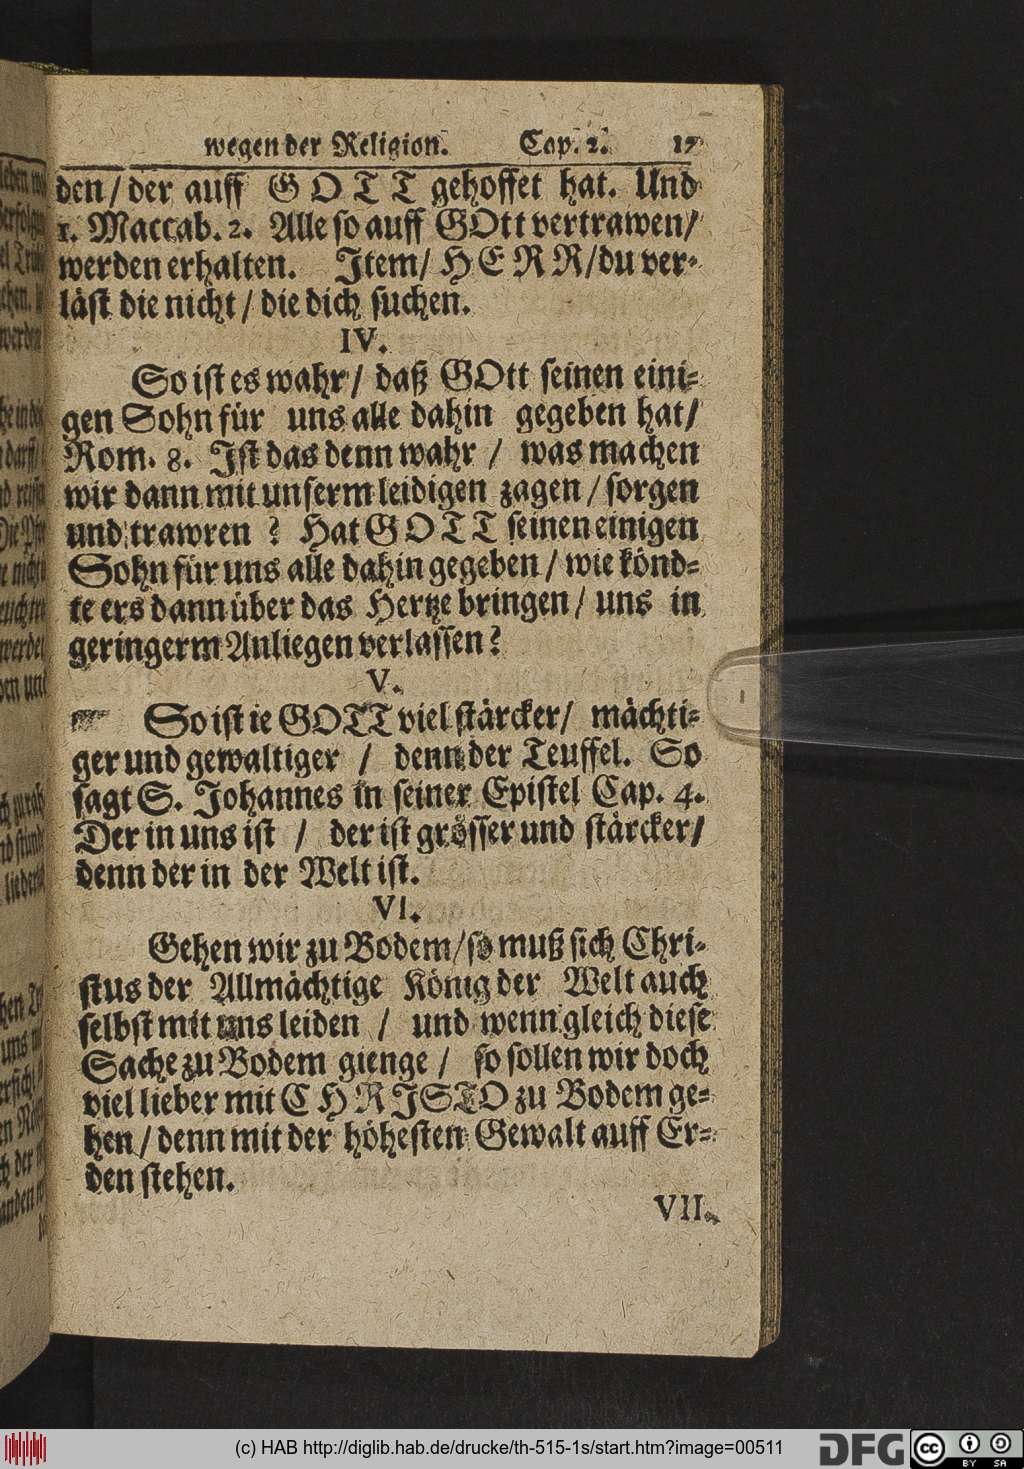 wegen der Religion. Cap. 2. 17
den / der auff GOTT gehoffet hat. Und
1. Maccab. 2. Alle so auff GOtt vertrawen /
werden erhalten. Item / HERR / du ver-
läst die nicht / die dich suchen.
IV.
So ist es wahr / daß GOtt seinen eini-
gen Sohn für uns alle dahin gegeben hat /
Rom. 8. Ist das denn wahr / was machen
wir dann mit unserm leidigen zagen / sorgen
und trawren ? Hat GOTT seinen einigen
Sohn für uns alle dahin gegeben / wie könd-
te ers dann über das Hertze bringen / uns in
geringerm Anliegen verlassen ?
V.
So ist ie GOTT viel stärcker / mächti-
ger und gewaltiger / denn der Teuffel. So
sagt S. Johannes in seiner Epistel Cap. 4.
Der in uns ist / der ist grösser und stärcker /
denn der in der Welt ist.
VI.
Gehen wir zu Bodem / so muß sich Chri-
stus der Allmächtige König der Welt auch
selbst mit uns leiden / und wenn gleich diese
Sache zu Bodem gienge / so sollen wir doch
viel lieber mit CHRISTO zu Bodem ge-
hen / denn mit der höhesten Gewalt auff Er-
den stehen.
VII.
(c) HAB http://diglib.hab.de/drucke/th-515-1s/start.htm?image=00511
DFG
cc BY SA